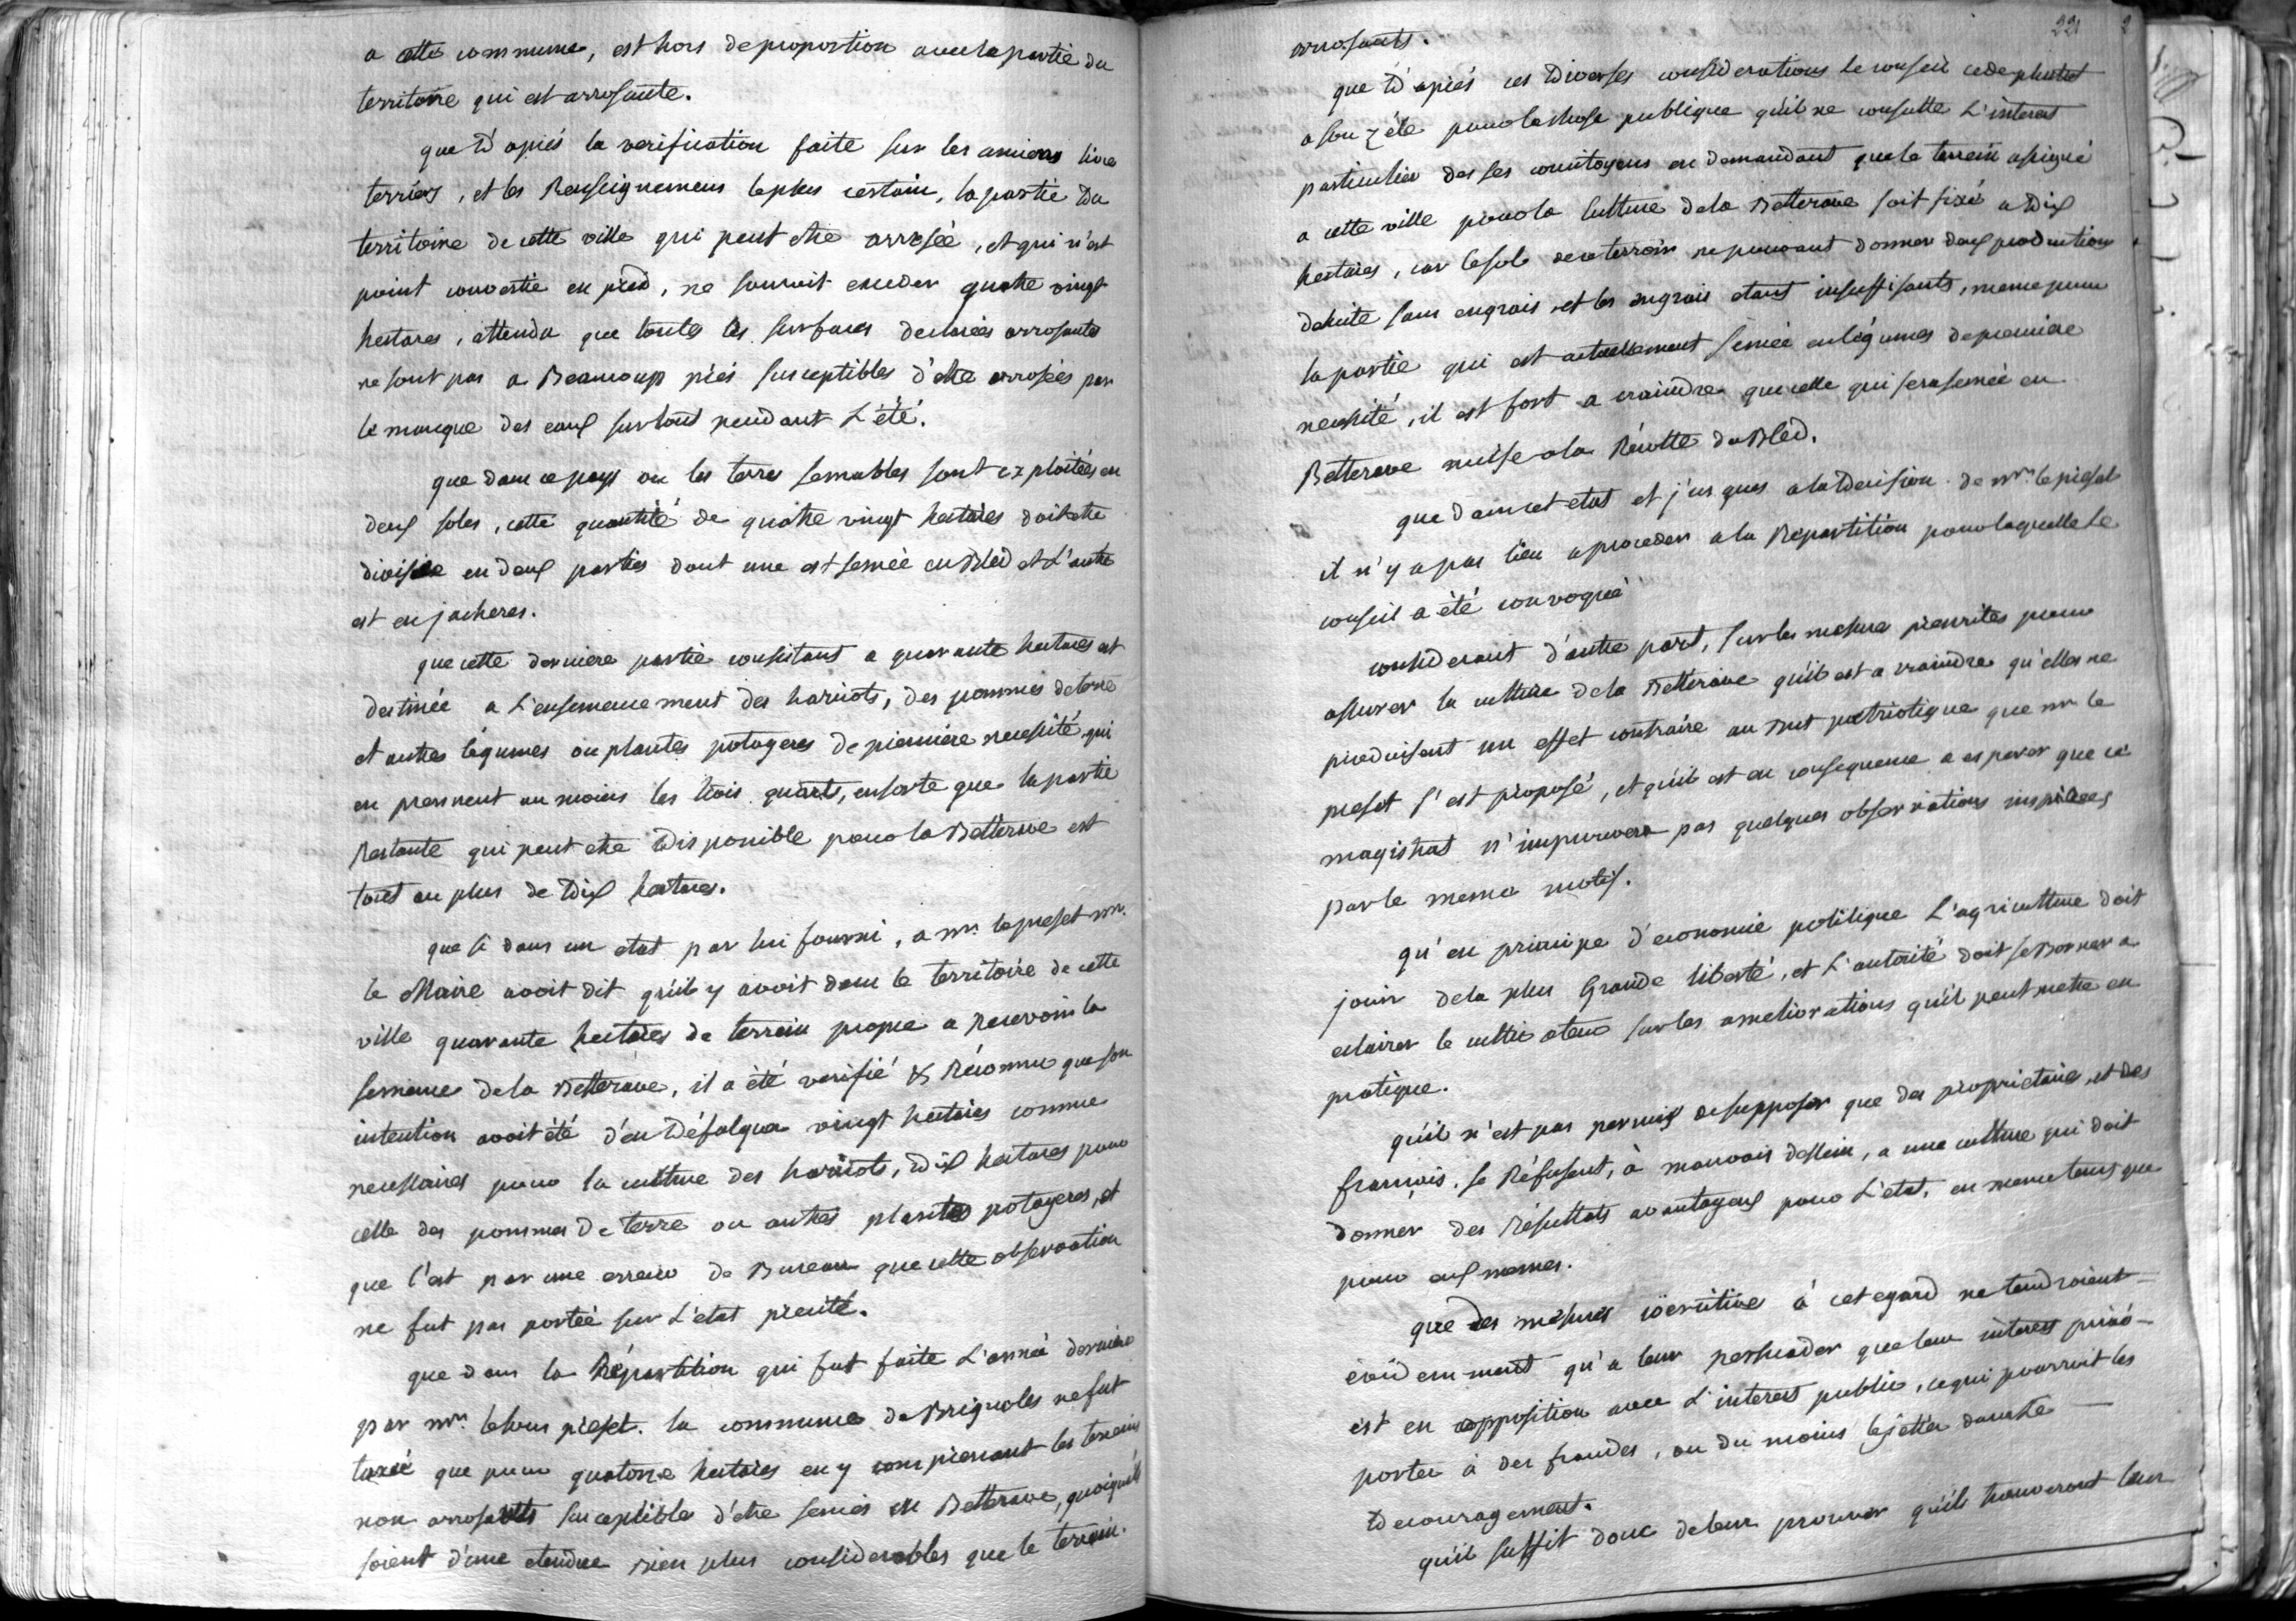 a cette commune, est hors de proportion avec la partie du
territoire qui est arrosante.
que d'apiés la verification faite sur les anciens livre
terriers, et les Renseignemens le plus certain, la partie du
territoire de cette ville qui peut etre arrosée, et qui n'est
point convertie en pred, ne sauroit exceder quatre vingt
hectares, attendu que toutes les surfaces declarées arrosantes
ne sont pas a Beaucoup piés susceptibles d'etre arrosées par
le manque des eaux surtout pendant L'été.
que dans ce pays ou les terres semables sont exploitées en
deux soles, cette quantité de quatre vingt hectares doit etre
divisée en deux parties dont une est semée en Bled et L'autre
est en jacheres.
que cette derniere partie consistant a quarante hectares est
destinée a L'ensemencement des haricots, des pommes de terre
et autres légumes ou plantes potageres de piemiére necessité, qui
en prennent au moins les trois quarts, ensorte que la partie
Restante qui peut etre disponible pour la Betterave est
tout au plus de dix hectares.
que si dans un etat par lui fourni, a mr. le prefet mr.
le Maire avoit dit qu'il y avoit dans le territoire de cette
ville quarante hectares de terrein propre a Recevoir la
semence de la Betterave, il a été verifié & Réconnu que son
intention avoit été d'en défalquer vingt hectares comme
necessaires pour la culture des haricots, dix hectares pour
celle des pommes de terre ou autres plantes potageres, et
que c'est par une erreur de Bureau que cette observation
ne fut pas portée sur L'etat piecité.
que dans la Répartition qui fut faite L'année derniere
par mr. le sous piefet. la commune de Brignoles ne fut
taxée que pour quatorze hectares en y compienant les terreins
non arrosants susceptibles d'etre semés en Betterave, quoiqu'ils
soient d'une etendue Bien plus considerables que le terrein.
221 2
arrosants.
que d'apiés ces diverses considerations le conseil cede plutot
a son zéle pour la chose publique qu'il ne consulte L'interet
particulier des ses concitoyens en demandant que le terrein assigné
a cette ville pour la culture de la Betterave soit fixé a dix
hectares, car le sol de ce terroir ne pouvant donner deux productions
desuite sans engrais et les engrais etant insuffisants, meme pour
la partie qui est actuellement semée en légumes de premiere
necessité, il est fort a craindre que celle qui sera semée en
Betterave nuise a la Récolte du Bled.
que dans cet etat et j'usques a la decision de mr. le piefet
il n'y a pas lieu a proceder a la Répartition pour laquelle le
conseil a été convoqué
considerant d'autre part, sur les mesures piescrites pour
assurer la culture de la Betterave qu'il est a craindre qu'elles ne
produisent un effet contraire au But patriotique que mr. le
prefet s'est proposé, et qu'il est en consequence a esperer que ce
magistrat n'improuvera pas quelques observations inspirées
par le meme motif.
qu'en principe d'economie politique L'agriculture doit
jouir de la plus Grande liberté, et L'autorité doit se Borner a
eclairer le cultivateur sur les ameliorations qu'il peut mettre en
pratique.
qu'il n'est pas permis de supposer que des proprietaires, et des
francois, se Réfusent, à mauvais dessein, a une culture qui doit
donner des Résultats avantageux pour L'etat, en meme tems que
pour eux memes.
que des mésures coërcitive à cet egard ne tendroient
évidemment qu'a leur persuader que leur interest privé
est en opposition avec L'interest public, ce qui pourroit les
porter à des fraudes, ou du moins les jetter dans le
découragement.
qu'il suffit donc de leur prouver qu'ils trouveront leur